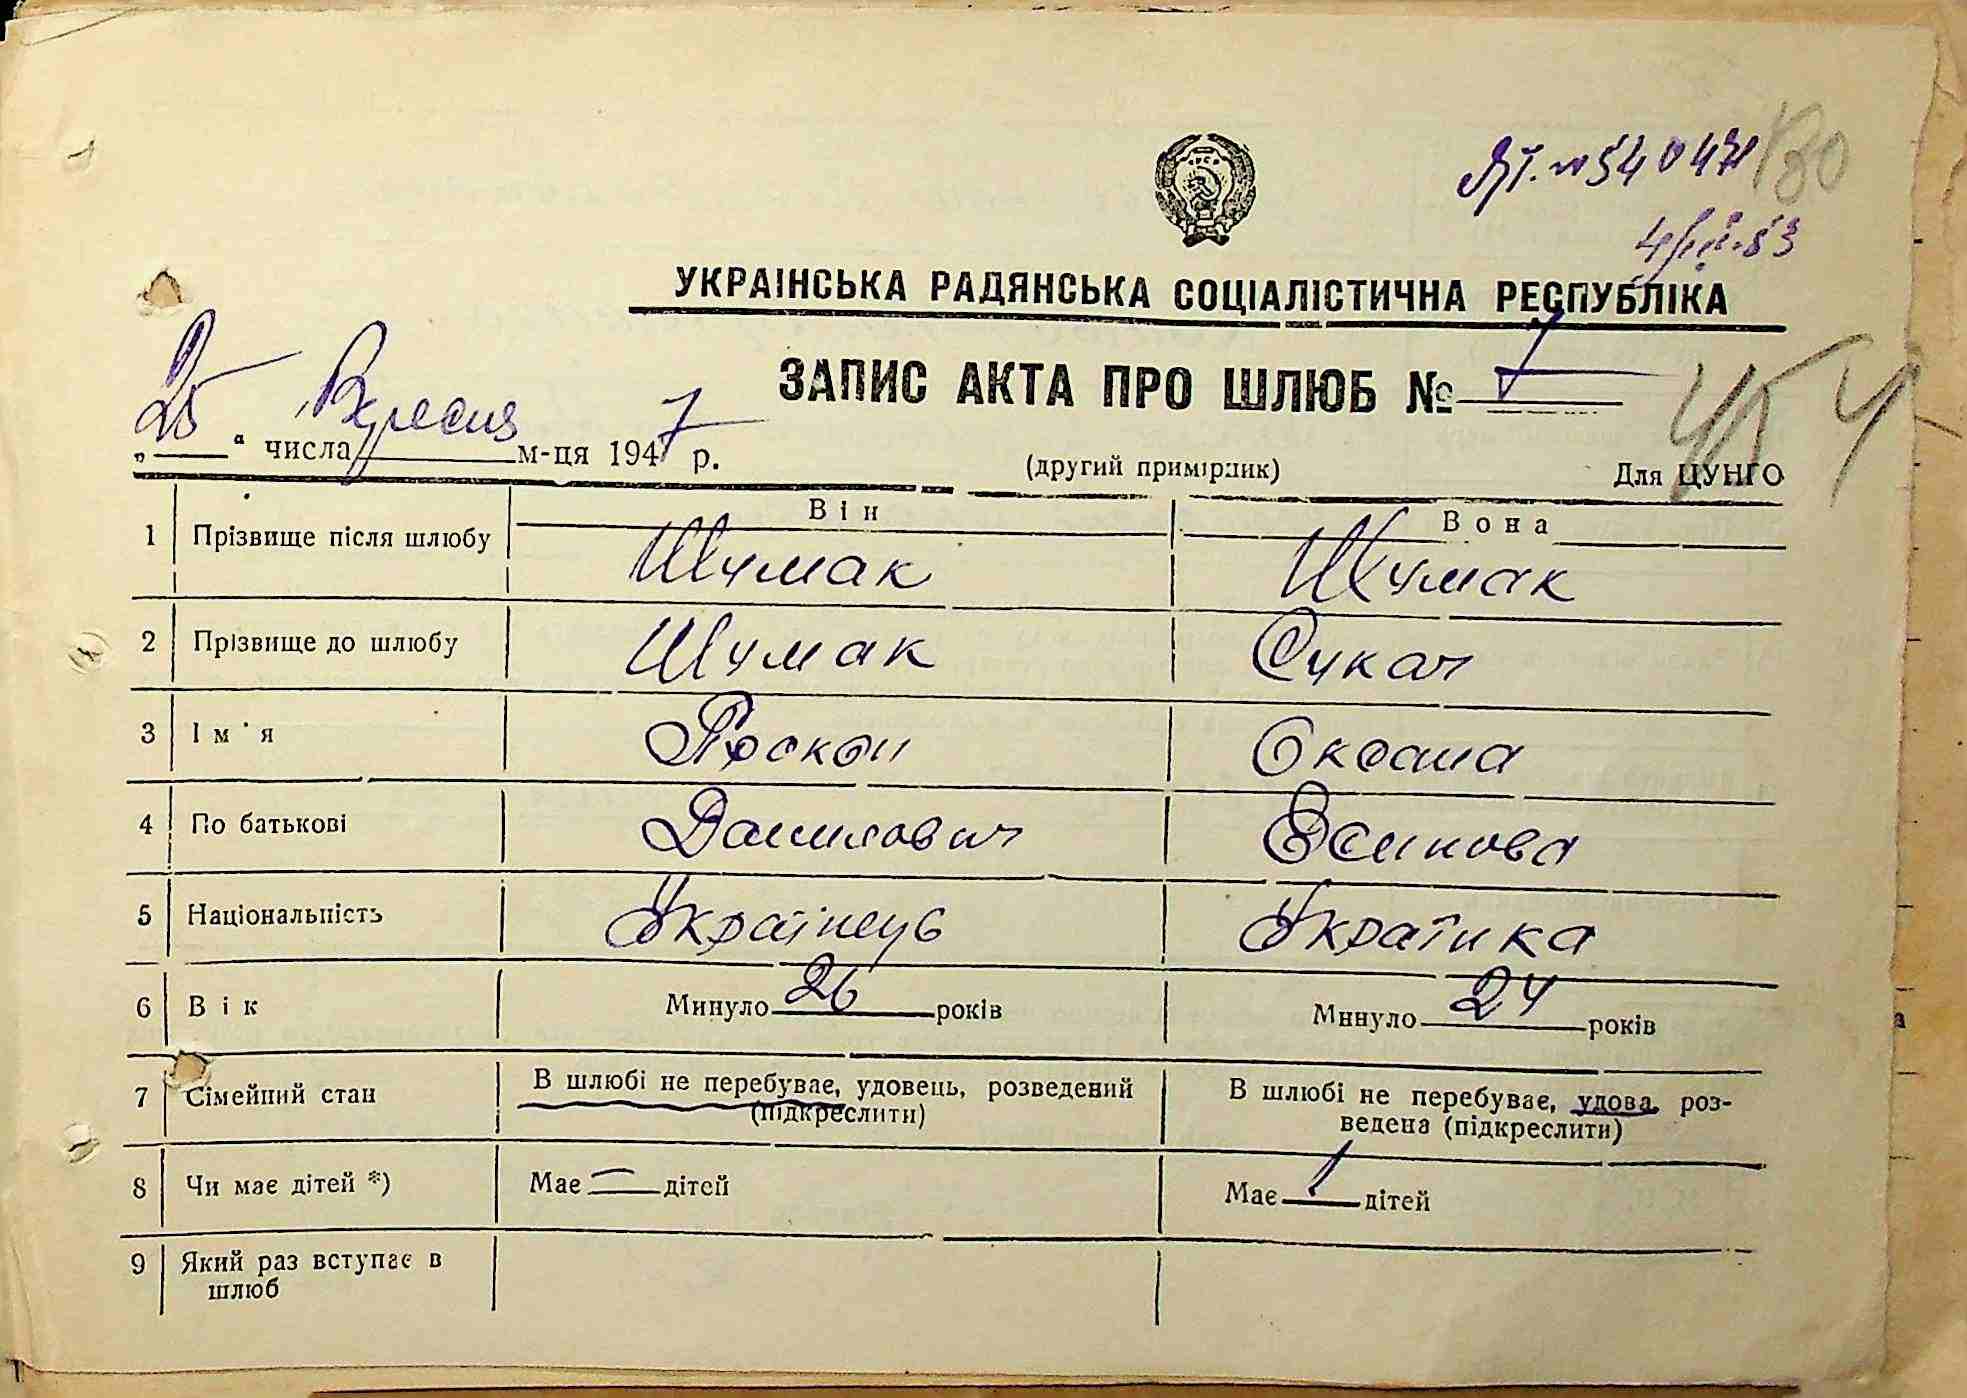 180
УКРАЇНСЬКА РАДЯНСЬКА СОЦІАЛІСТИЧНА РЕСПУБЛІКА
ЗАПИС АКТА ПРО ШЛЮБ № 7
„25“ числа Вересня м-ця 1947 р.
(другий примірник) Для ЦУНГО
Він Вона
1 Прізвище після шлюбу Шумак Шумак
2 Прізвище до шлюбу Шумак Сукач
3 Ім'я Оксана
4 По батькові Данилович Осипова
5 Національність Українець Українка
6 Вік Минуло 26 років Минуло 24 років
7 Сімейний стан В шлюбі не перебуває, удовець, розведений (підкреслити) В шлюбі не перебуває, удова, роз-
ведена (підкреслити)
8 Чи має дітей *) Має — дітей Має 1 дітей
9 Який раз вступає в
шлюб